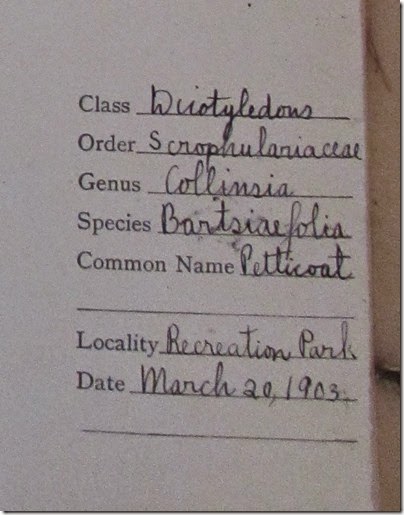 Class Diciotyledons
Order Scrophulariaceae
Genus Collinsia
Species Bartsiaefolia
Common Name Petticoat
Locality Recreation Park
Date March 20, 1903.